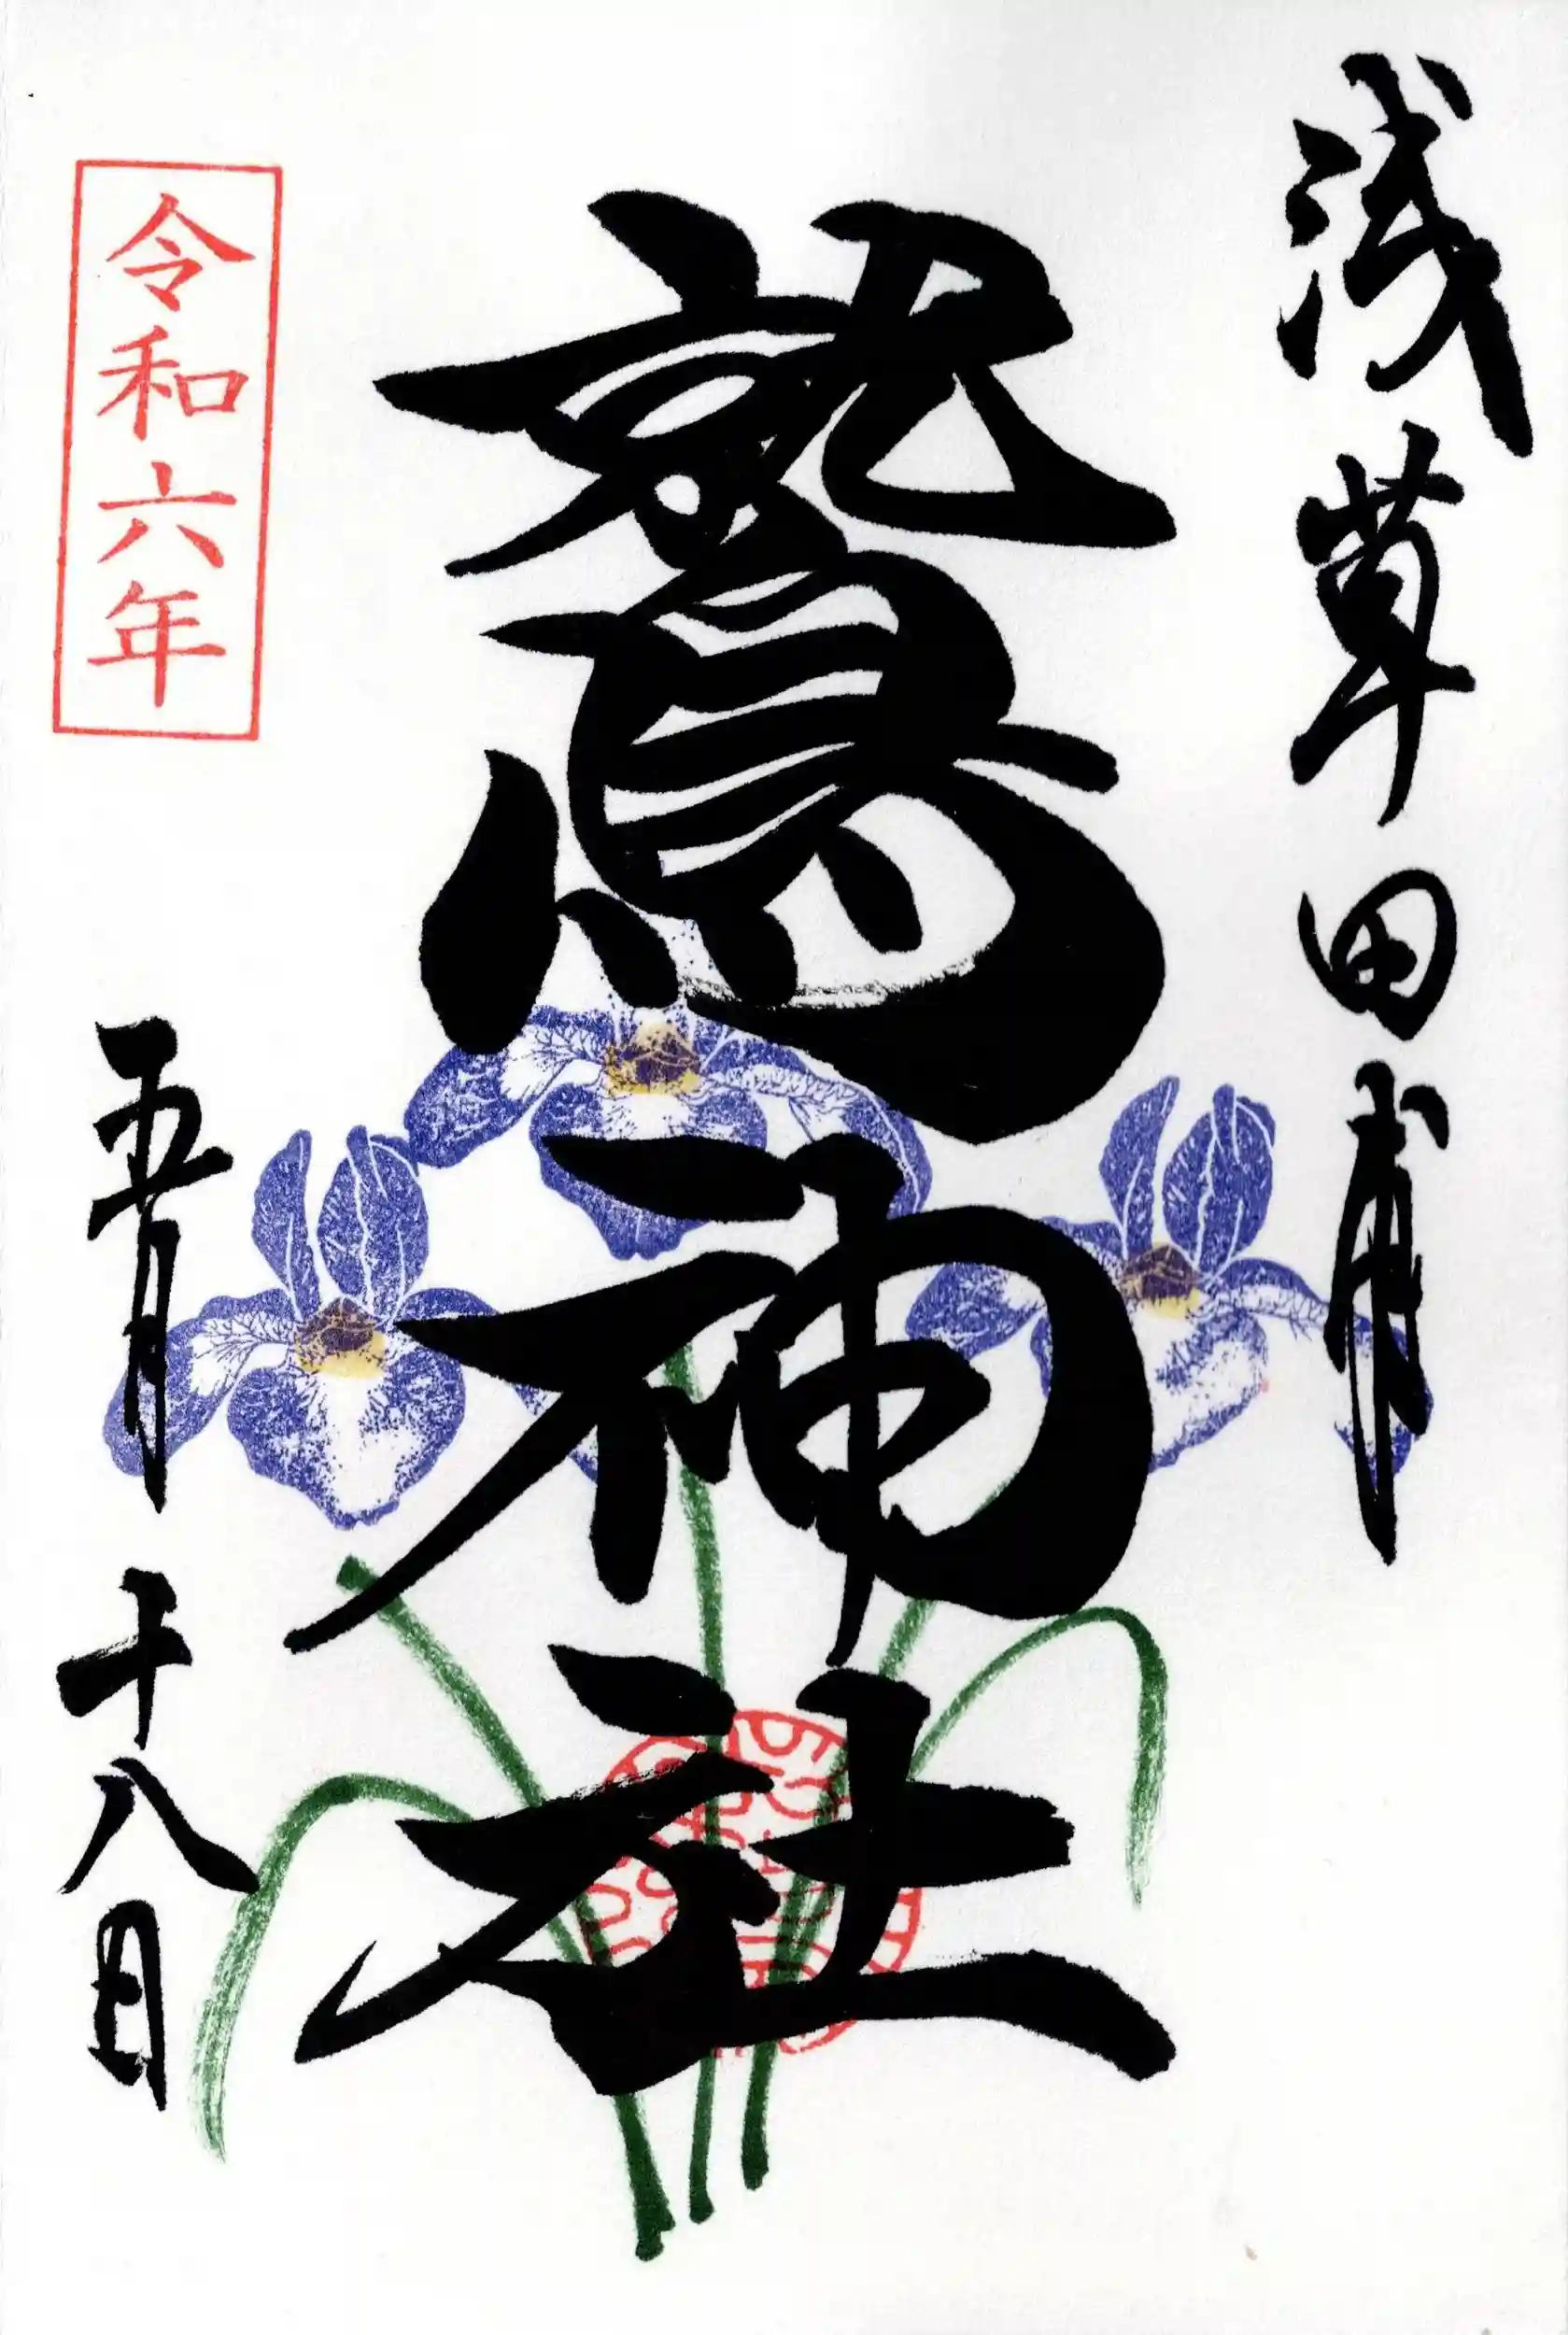 浅草田甫
鷲神社
令和六年
五月十八日